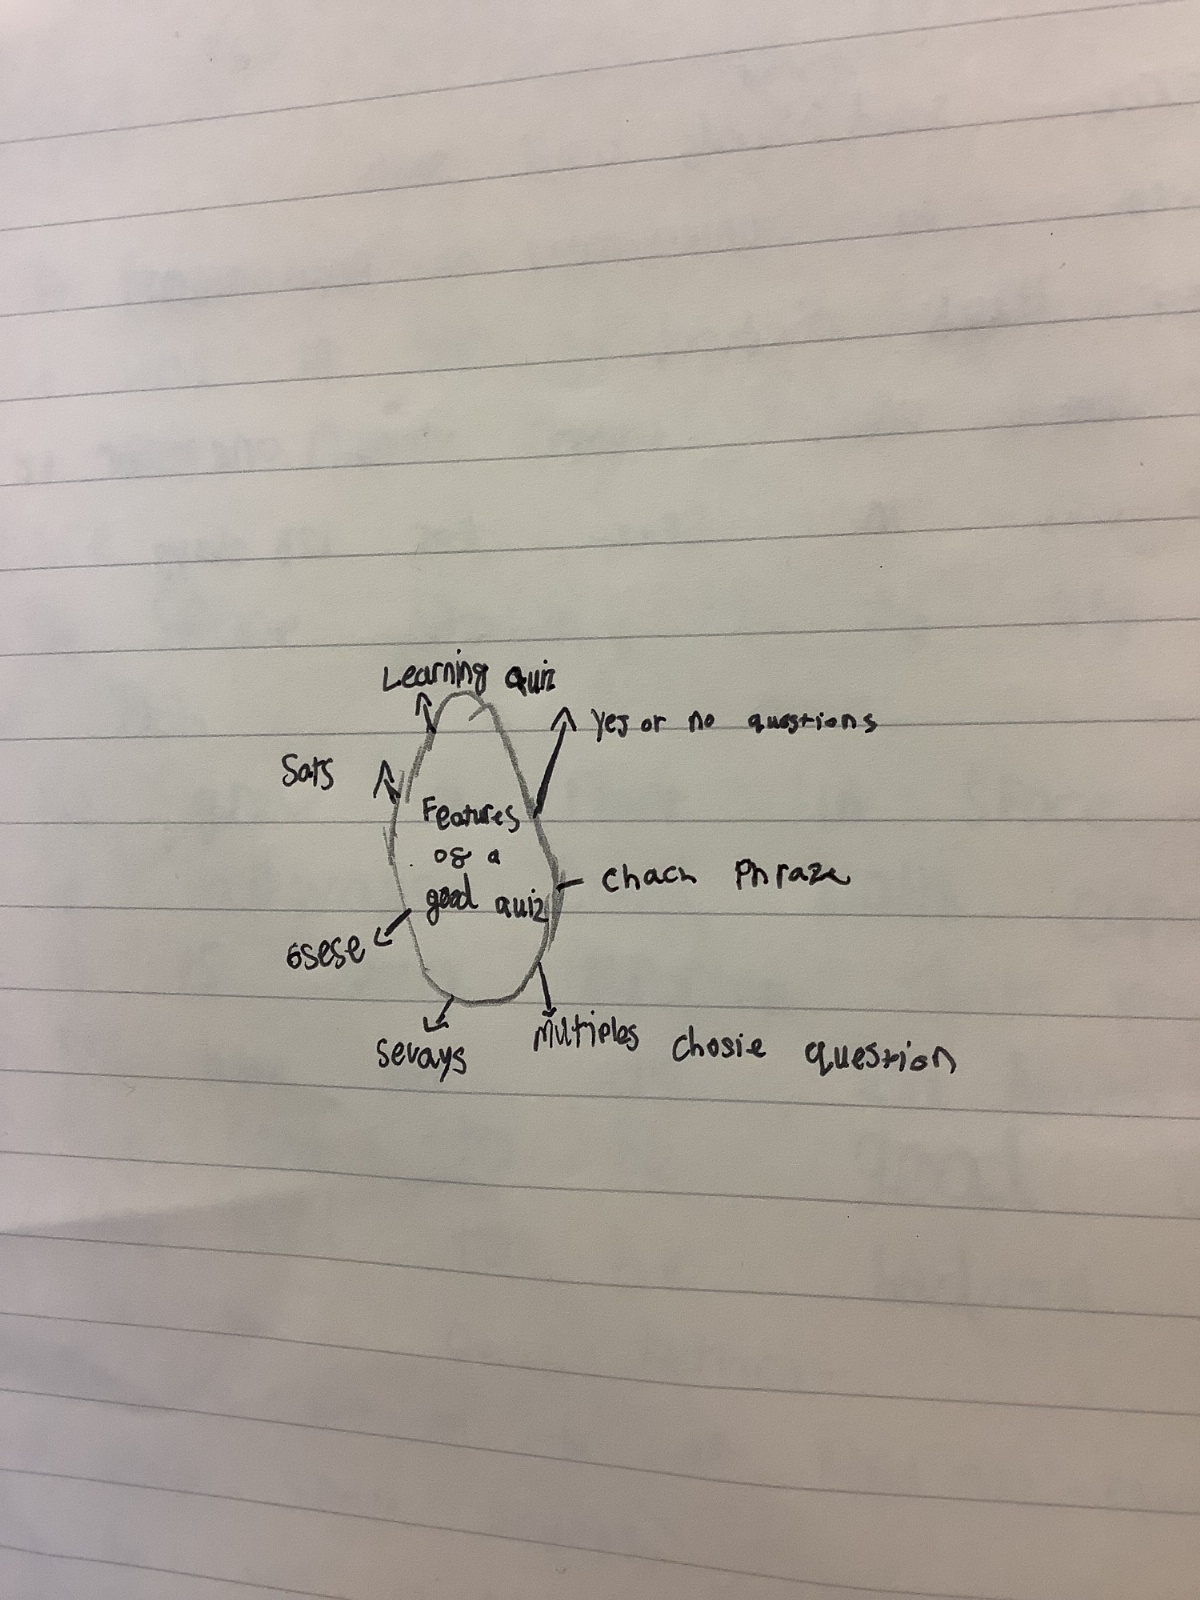 Learning quiz
yes or no questions
Sats
Features
of a
good quiz
chach Phraze
Gsese
Sevays
Multiples chosie question